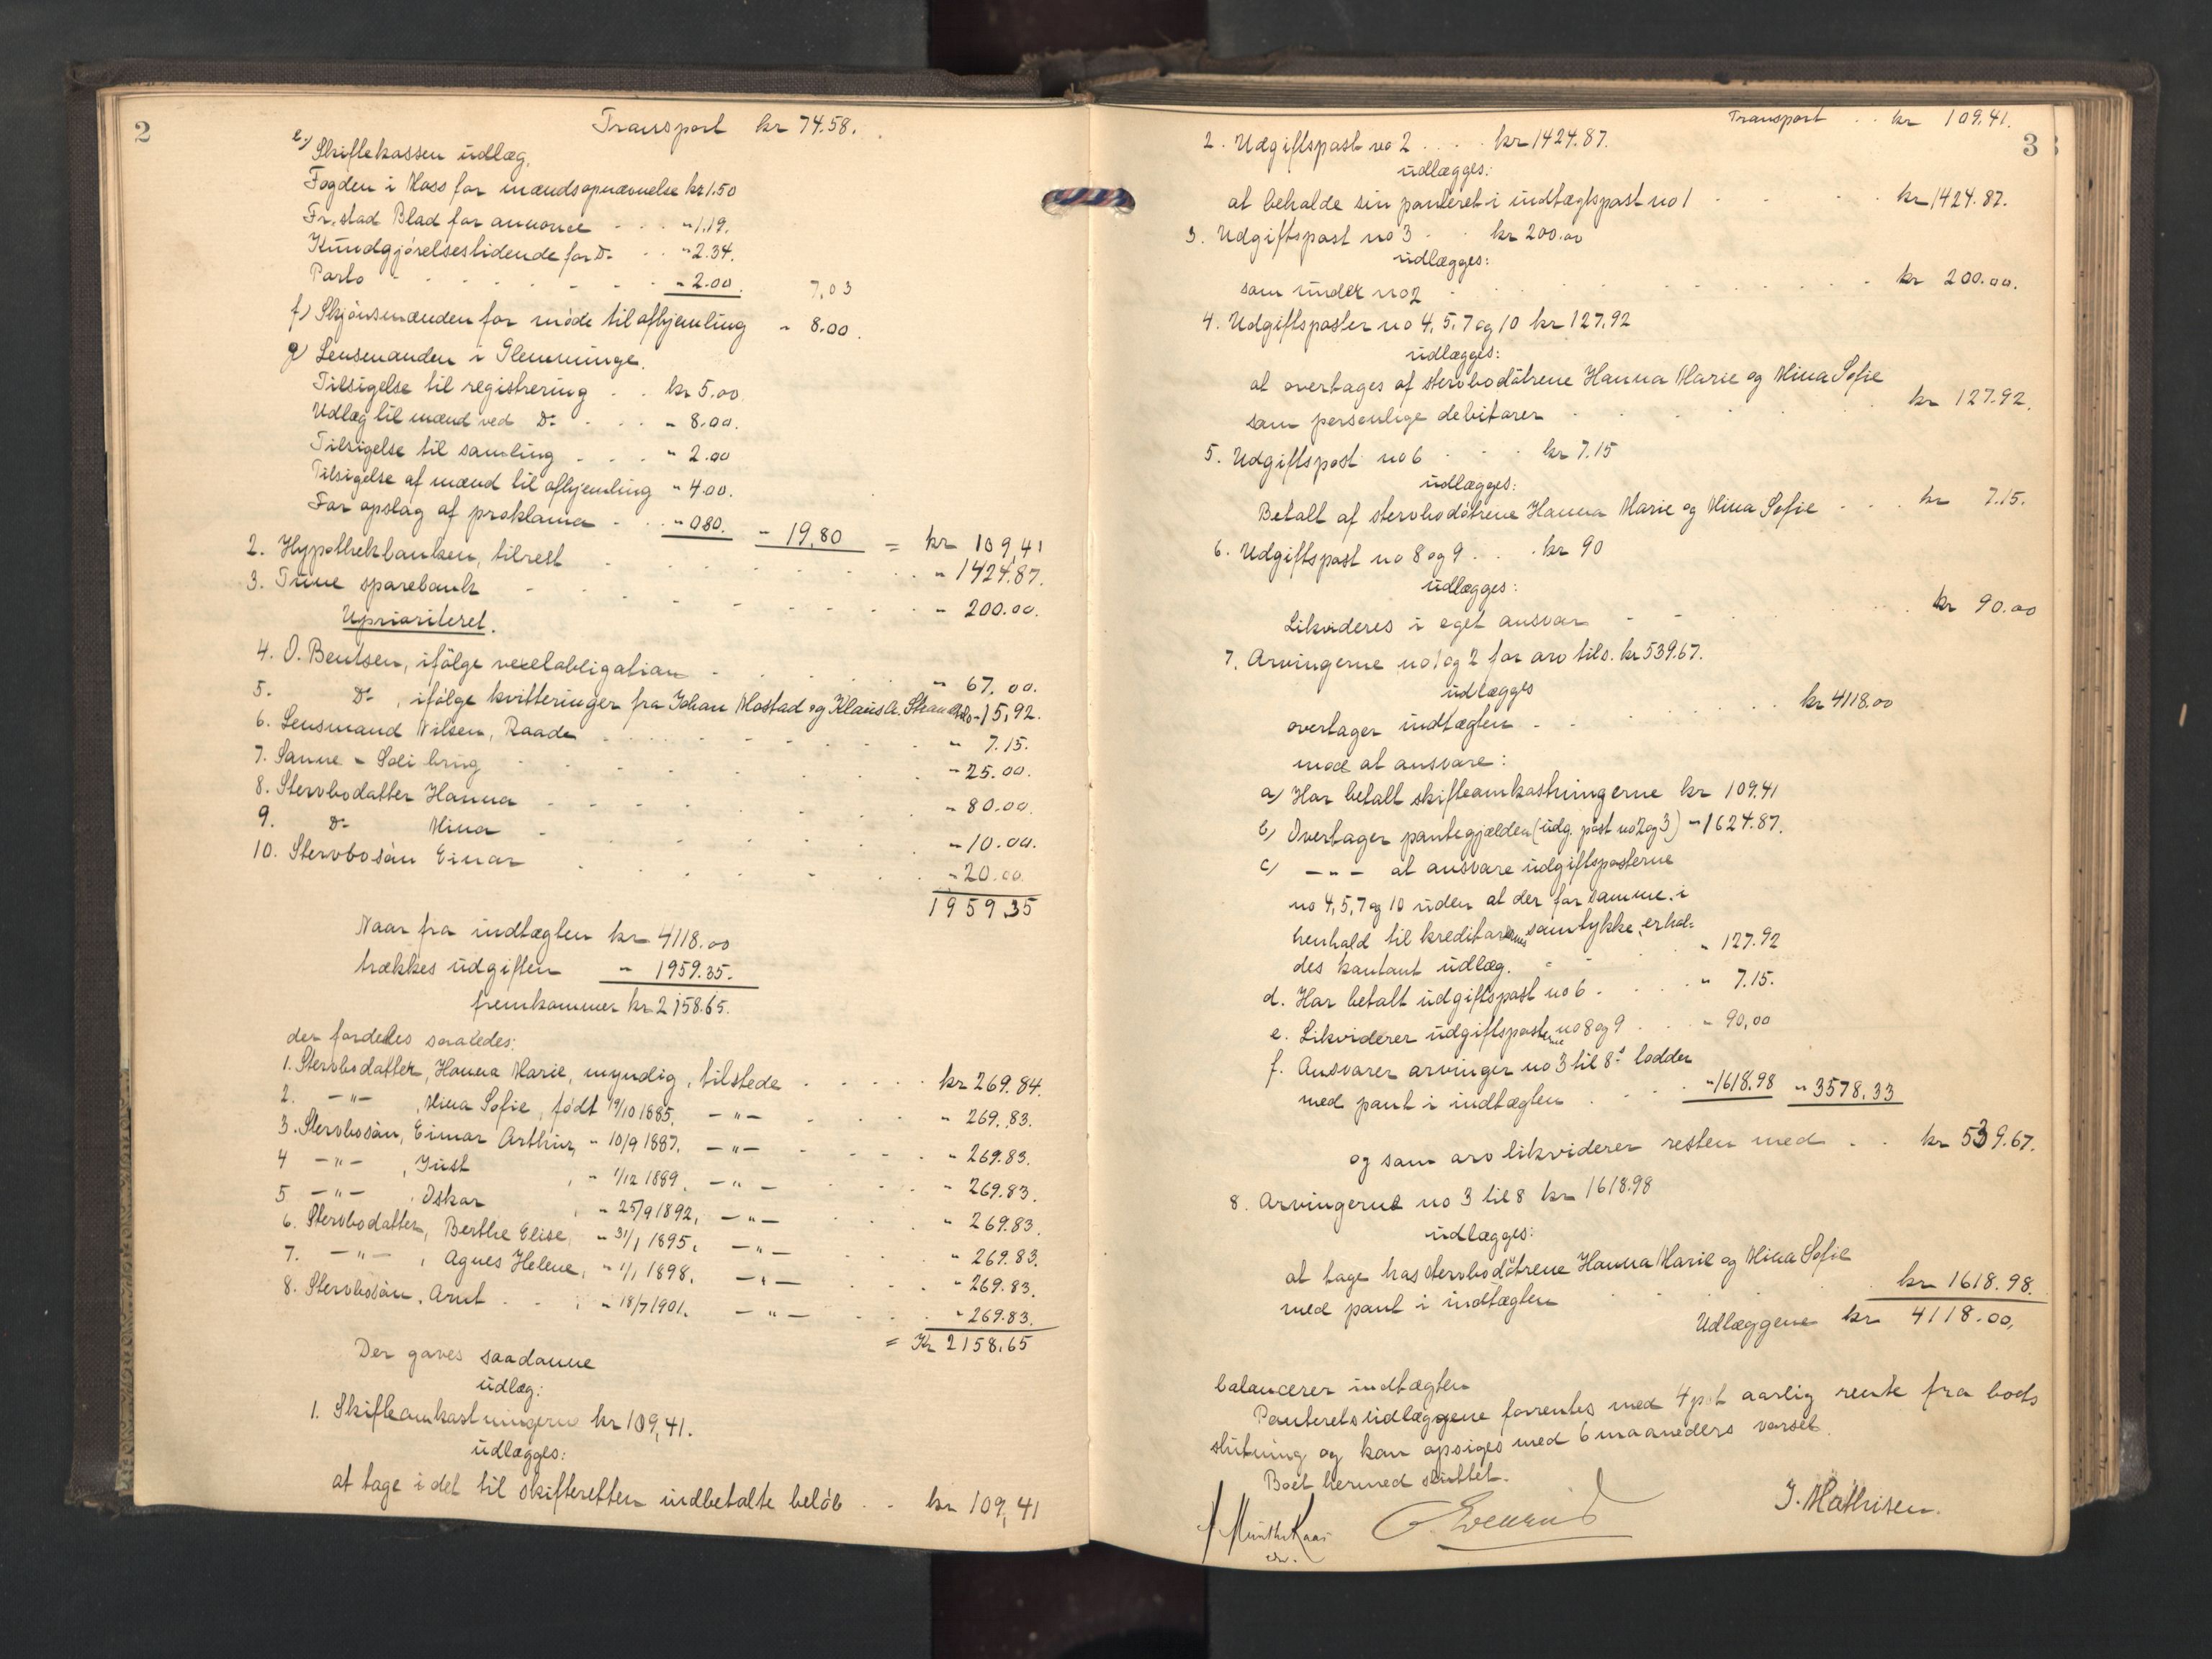 2
Transport kr 74.58.
e) Skiftekassen udlæg,
Fogden i Moss for mændsopnævnelse kr 1.50
Fr.stad Blad for annonce - - - " 1.19.
Kundgjørelsestidende for Do - - " 2.34.
Porto - - - - - - " 2.00. 7,03
f) Skjönsmænden for möde til afhjemling " 8.00.
g) Lensmanden i Glemminge.
Tilsigelse til registrering - - kr 5.00
Udlæg til mænd ved Do - - - " 8.00.
Tilsigelse til samling - - - " 2.00
Tilsigelse af mænd til afhjemling " 4.00.
For opslag af proklama - - - " 080. - 19,80 = kr 109,41
2. Hypothekbanken, tilrest - - - " 1424.87.
3. Tune sparebank - - - " 200.00.
Uprioriteret.
4. O. Bentsen, ifölge vexelobligation - - - " 67.00.
5. Do , ifölge kvitteringer fra Johan Mostad og Klaus A. - 15,92.
6. Lensmand Nilsen, Raade - - - " 7.15.
7. Sanne - Soli brug - - - " 25.00.
8. Stervbodatter Hanna - - - " 80.00.
9. Do Mina - - - " 10.00.
10. Stervbosön Einar - - - " 20.00.
1959.35
Naar fra indtægten kr 4118.00
trækkes udgiften " 1959.35.
fremkommer kr 2158.65.
der fordeles saaledes:
1. Stervbodatter, Hanna Marie, myndig, tilstede - - - kr 269.84.
2. - " - , Mina Sofie, født 19/10 1885. - " - " 269.83.
3. Stervbosön, Einar Arthur, " 10/9 1887. - " - " 269.83.
4 - " - , Just , " 1/12 1889. - " - " 269.83.
5 - " - , Oskar , " 25/9 1892, - " - " 269.83.
6. Stervbodatter, Berthe Elise, " 31/1 1895. - " - " 269.83.
7. - " - , Agnes Helene, " 1/1 1898. - " - " 269.83.
8. Stervbosön, Arnt - - , " 18/7 1901. - " - " 269.83.
= Kr 2158.65
Der gaves saadanne
udlæg:
1. Skifteomkostningerne kr 109,41.
udlægges:
at tage i det til skifteretten indbetalte belöb - - kr 109,41
3
Transport - - kr 109.41.
2. Udgiftspost no 2 - - - kr 1424.87.
udlægges:
at beholde sin panteret i indtægtspost no 1 - - - kr 1424.87.
3. Udgiftspost no 3 - - kr 200.00
udlægges:
som under no 2 - - - kr 200.00.
4. Udgiftsposter no 4, 5, 7 og 10 kr 127.92
udlægges:
at overtages af stervbodötrene Hanna Marie og Mina Sofie
som personlige debitorer - - - kr 127.92.
5. Udgiftspost no 6 - - - kr 7.15
udlægges:
Betalt af stervbodötrene Hanna Marie og Mina Sofie - - - kr 7.15.
6. Udgiftspost no 8 og 9 - - - kr 90
udlægges:
Likvideres i eget ansvar - - - kr 90.00
7. Arvingerne no 1 og 2 for arv tils. kr 539.67.
udlægges
overtager indtægten - - - kr 4118.00
mod at ansvare:
a) Har betalt skifteomkostningerne kr 109.41
b) Overtager pantegjælden (udg. post no 2 og 3) " 1624.87.
c) - " - at ansvare udgiftsposterne
no 4, 5, 7 og 10 uden at der for samme, i
henhold til kreditorernes samtykke, erhol-
des kontant udlæg. - - " 127.92
d. Har betalt udgiftspost no 6 - - - " 7.15.
e. Likviderer udgiftsposterne no 8 og 9 - - - " 90,00
f. Ansvarer arvinger no 3 til 8s lodder
med pant i indtægten - - - " 1618.98 " 3578.33
og som arv likviderer resten med - - kr 539.67.
8. Arvingerne no 3 til 8 kr 1618.98
udlægges:
at tage hos stervbodötrene Hanna Marie og Mina Sofie
med pant i indtægten - - - kr 1618.98.
Udlæggene kr 4118.00,
balancerer indtægten
Panteretsudlæggene forrentes med 4 pct aarlig rente fra boets
slutning og kan opsiges med 6 maaneders varsel.
Boet hermed sluttet.
Munthe Kaas
J. Mathisen.